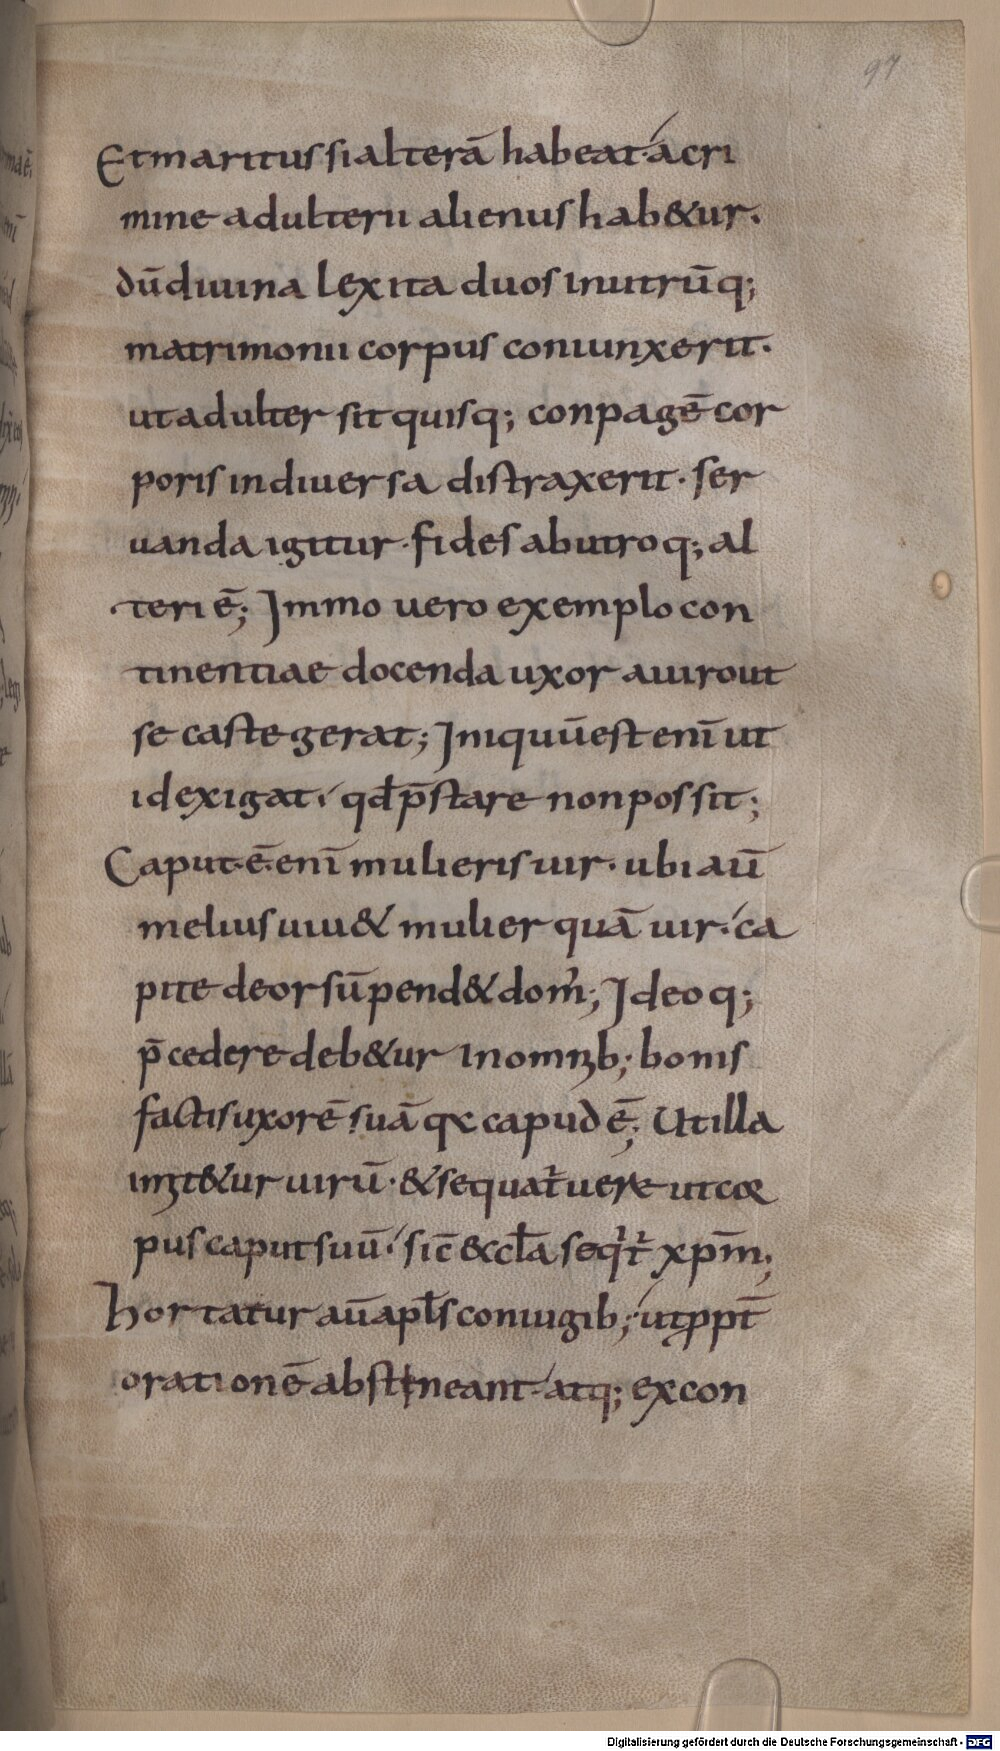 97
Et maritus si alterā habeat· á cri
mine adulterii alienus hab&ur·
dū diuina lex ita duos in utrūq;
matrimonii corpus coniunxerit·
ut adulter sit quisq; conpagē cor
poris in diuersa distraxerit· ser
uanda igitur· fides ab utroq; al
teri ē; Immo uero exemplo con
tinentiae docenda uxor a uiro ut
se caste gerat; Iniquū est enī ut
id exigat· qd̄ p̄stare non possit;
Caput·ē· enī mulieris uir· ubi aū
melius uiu& mulier quā uir· ca
pite deorsū pend& dom'; Ideoq;
p̄cedere deb&ur in omīb; bonis
factis uxorē suā q̨ capud ē; Ut illa
imit&ur uirū· & sequat̄ uere ut cor
pus caput suū· sic̄ & ccl̄a seqt̄ xp̄m;
Hortatur aū apl̄s coniugib; ut ꝓpt̄
orationē abstineant· atq; ex con
Digitalisierung gefördert durch die Deutsche Forschungsgemeinschaft - DFG